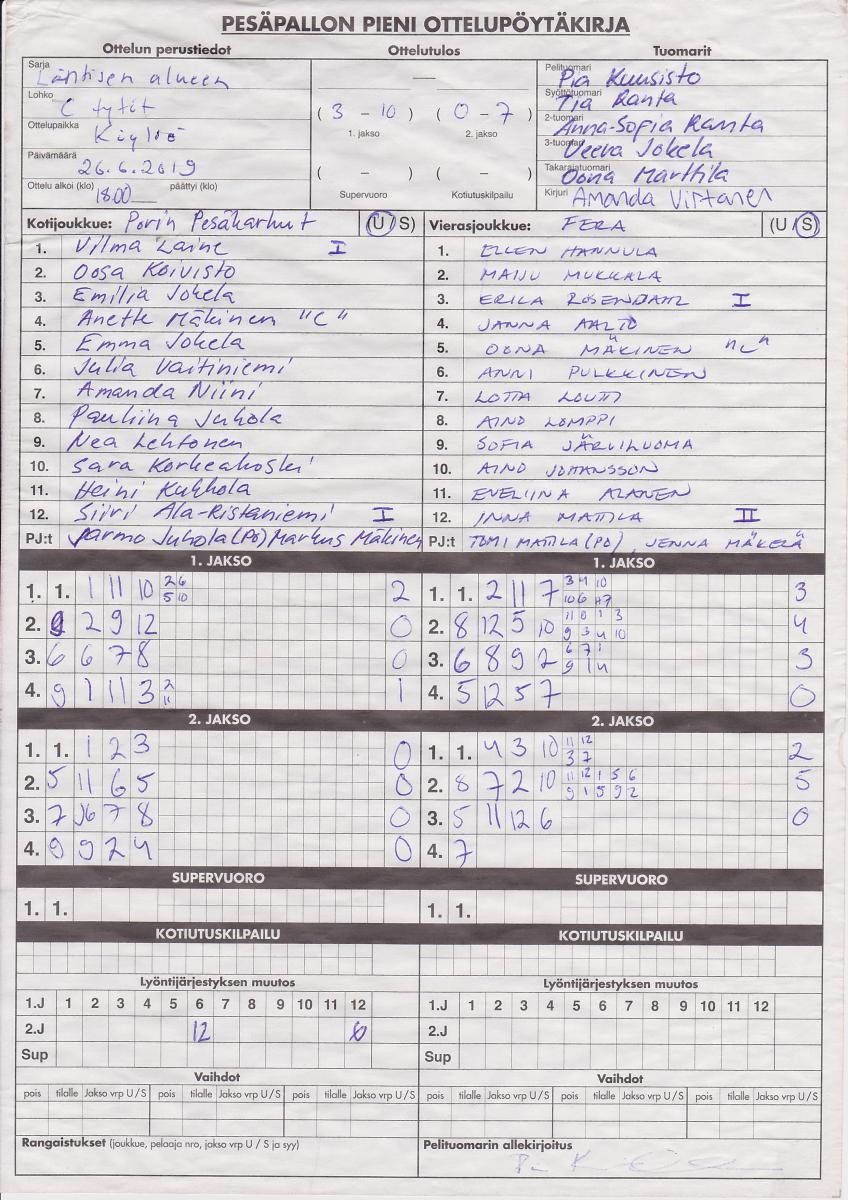 PESÄPALLON PIENI OTTELUPÖYTÄKIRJA
Ottelun perustiedot Ottelutulos Tuomarit
Sarja Läntisen alueen
Lohko C tytöt
Ottelupaikka Köyliö
Päivämäärä 26.6.2019
Ottelu alkoi (klo) 18.00 päättyi (klo)
—
( 3 – 10 ) ( 0 – 7 )
1. jakso 2. jakso
( – ) ( – )
Supervuoro Kotiutuskilpailu
Pelituomari Pia Kuusisto
Syöttötuomari Tia Ranta
2-tuomari Anna-Sofia Ranta
3-tuomari Veera Jokela
Takarajatuomari Oona Marttila
Kirjuri Amanda Virtanen
Kotijoukkue: Porin Pesäkarhut (U / S)
1. Vilma Laine I
2. Oosa Koivisto
3. Emilia Jokela
4. Anette Mäkinen "C"
5. Emma Jokela
6. Julia Vaitiniemi
7. Amanda Niini
8. Pauliina Juhola
9. Nea Lehtonen
10. Sara Korkeakoski
11. Heini Kukkola
12. Siiri Ala-Ristaniemi I
PJ:t Jarmo Juhola (PÖ) Markus Mäkinen
Vierasjoukkue: FERA (U / S)
1. ELLEN HANNULA
2. MAIJU MUKKALA
3. ERIKA ROSENDAHL I
4. JANNA AALTO
5. OONA MÄKINEN "C"
6. ANNI PULKKINEN
7. LOTTA LOUTI
8. AINO LOMPPI
9. SOFIA JÄRVILUOMA
10. AINO JOHANSSON
11. EVELIINA ALANEN
12. INNA MATTILA II
PJ:t TOMI MATTILA (PÖ), JENNA MÄKELÄ
1. JAKSO 1. JAKSO
1. 1. 1 11 10 2 6 5 10 2
2. 2 9 12 0
3. 6 6 7 8 0
4. 9 1 11 3 2 11 1
1. 1. 2 11 7 3 4 10 10 6 3
2. 8 12 5 10 11 8 1 3 9 3 4 10 4
3. 6 8 9 2 6 7 1 9 1 4 3
4. 5 12 5 7 0
2. JAKSO 2. JAKSO
1. 1. 1 2 3 0
2. 5 11 6 5 0
3. 7 7 8 0
4. 9 9 2 4 0
1. 1. 4 3 10 11 12 3 7 2
2. 8 7 2 10 11 12 1 5 6 9 1 5 9 2 5
3. 5 11 12 6 0
4. 7
SUPERVUORO SUPERVUORO
1. 1. 1. 1.
KOTIUTUSKILPAILU KOTIUTUSKILPAILU
Lyöntijärjestyksen muutos Lyöntijärjestyksen muutos
1.J 1 2 3 4 5 6 7 8 9 10 11 12 1.J 1 2 3 4 5 6 7 8 9 10 11 12
2.J 12 6 2.J
Sup Sup
Vaihdot Vaihdot
pois tilalle Jakso vrp U / S pois tilalle Jakso vrp U / S pois tilalle Jakso vrp U / S pois tilalle Jakso vrp U / S pois tilalle Jakso vrp U / S pois tilalle Jakso vrp U / S
Rangaistukset (joukkue, pelaaja nro, jakso vrp U / S ja syy) Pelituomarin allekirjoitus